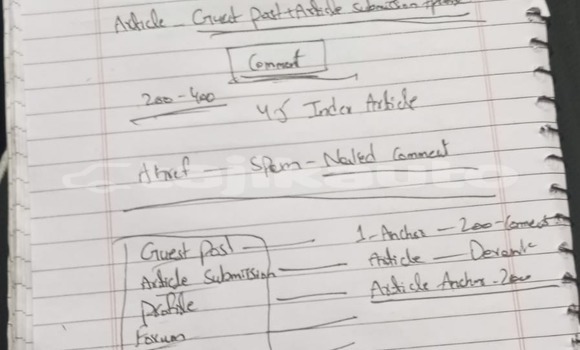 Article - Guest Post + Article Submission
Comment
200-400
45 Index Article
Ahref - Spam - Naked Comment
Guest Post - 1-Anchor - 200-Comment
Article Submission - Article -
Profile - Article Anchor-200
Forum